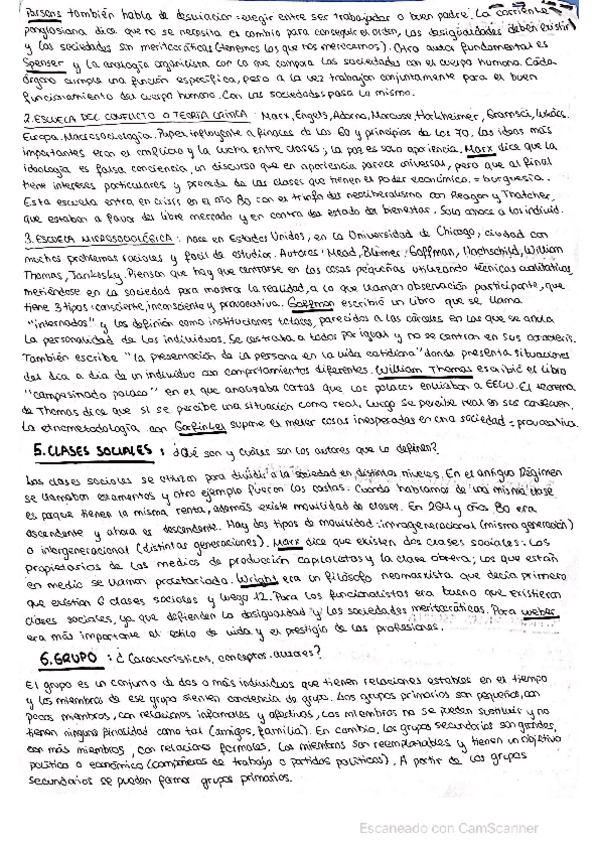 Parsons también habla de desviación: elegir entre ser trabajador o buen padre. La corriente
panglosiana dice que no se necesita el cambio para conseguir el orden, las desigualdades deben existir
y las sociedades sin meritocráticas (tenemos los que nos merecemos). Otro autor fundamental es
Spenser y la analogía organicista con la que compara las sociedades con el cuerpo humano. Cada
órgano cumple una función específica, pero a la vez trabajan conjuntamente para el buen
funcionamiento del cuerpo humano. Con las sociedades pasa lo mismo.
2. ESCUELA DEL CONFLICTO O TEORÍA CRÍTICA: Marx, Engels, Adorno, Marcuse, Horkheimer, Gramsci, Lukács.
Europa. Macrosociología. Papel influyente a finales de los 60 y principios de los 70. Las ideas más
importantes eran el conflicto y la lucha entre clases; la paz es solo apariencia. Marx dice que la
ideología es falsa conciencia, un discurso que en apariencia parece universal, pero que al final
tiene intereses particulares y procede de las clases que tienen el poder económico. = burguesía.
Esta escuela entra en crisis en el año 80 con el triunfo del neoliberalismo con Reagan y Thatcher,
que estaban a favor del libre mercado y en contra del estado del bienestar. Solo conoce a los individ.
3. ESCUELA MICROSOCIOLÓGICA: nace en Estados Unidos, en la Universidad de Chicago, ciudad con
muchos problemas raciales y fácil de estudiar. Autores: Mead, Blumer, Goffman, Hochschild, William
Thomas, Piensan que hay que centrarse en las cosas pequeñas utilizando técnicas cualitativas,
metiéndose en la sociedad para mostrar la realidad, a lo que llaman observación participante, que
tiene 3 tipos: consciente, inconsciente y provocativa. Goffman escribió un libro que se llama
"internados" y los definía como instituciones totales, parecidos a las cárceles en las que se anula
la personalidad de los individuos. Se castraba a todos por igual y no se centran en sus caracterís.
También escribe "la presentación de la persona en la vida cotidiana" donde presenta situaciones
del día a día de un individuo con comportamientos diferentes. William Thomas escribió el libro
"campesinado polaco" en el que analizaba cartas que los polacos enviaban a EEUU. El teorema
de Thomas dice que si se percibe una situación como real, luego se percibe real en sus consecuen.
La etnometodología con Garfinkel supone el meter cosas inesperadas en una sociedad = provocativa.
5. CLASES SOCIALES: ¿Qué son y cuáles son los autores que lo definen?
Las clases sociales se utilizan para dividir a la sociedad en distintos niveles. En el antiguo Régimen
se llamaban estamentos y otro ejemplo fueron las castas. Cuando hablamos de una misma clase
es porque tienen la misma renta, además existe movilidad de clases. En y años 80 era
ascendente y ahora es descendente. Hay dos tipos de movilidad: intrageneracional (misma generación)
o intergeneracional (distintas generaciones). Marx dice que existen dos clases sociales: los
propietarios de los medios de producción capitalistas y la clase obrera; los que están
en medio se llaman proletariado. Wright era un filósofo neomarxista que decía primero
que existían 6 clases sociales y luego 12. Para los funcionalistas era bueno que existieran
clases sociales, ya que defienden la desigualdad y las sociedades meritocráticas. Para Weber
era más importante el estilo de vida y el prestigio de las profesiones.
6. GRUPO: ¿Características, conceptos, autores?
El grupo es un conjunto de dos o más individuos que tienen relaciones estables en el tiempo
y los miembros de ese grupo sienten conciencia de grupo. Los grupos primarios son pequeños, con
pocos miembros, con relaciones informales y afectivas, los miembros no se pueden sustituir y no
tienen ninguna finalidad como tal (amigos, familia). En cambio, los grupos secundarios son grandes,
con más miembros, con relaciones formales. Los miembros son reemplazables y tienen un objetivo
político o económico (compañeros de trabajo o partidos políticos). A partir de los grupos
secundarios se pueden formar grupos primarios.
Escaneado con CamScanner